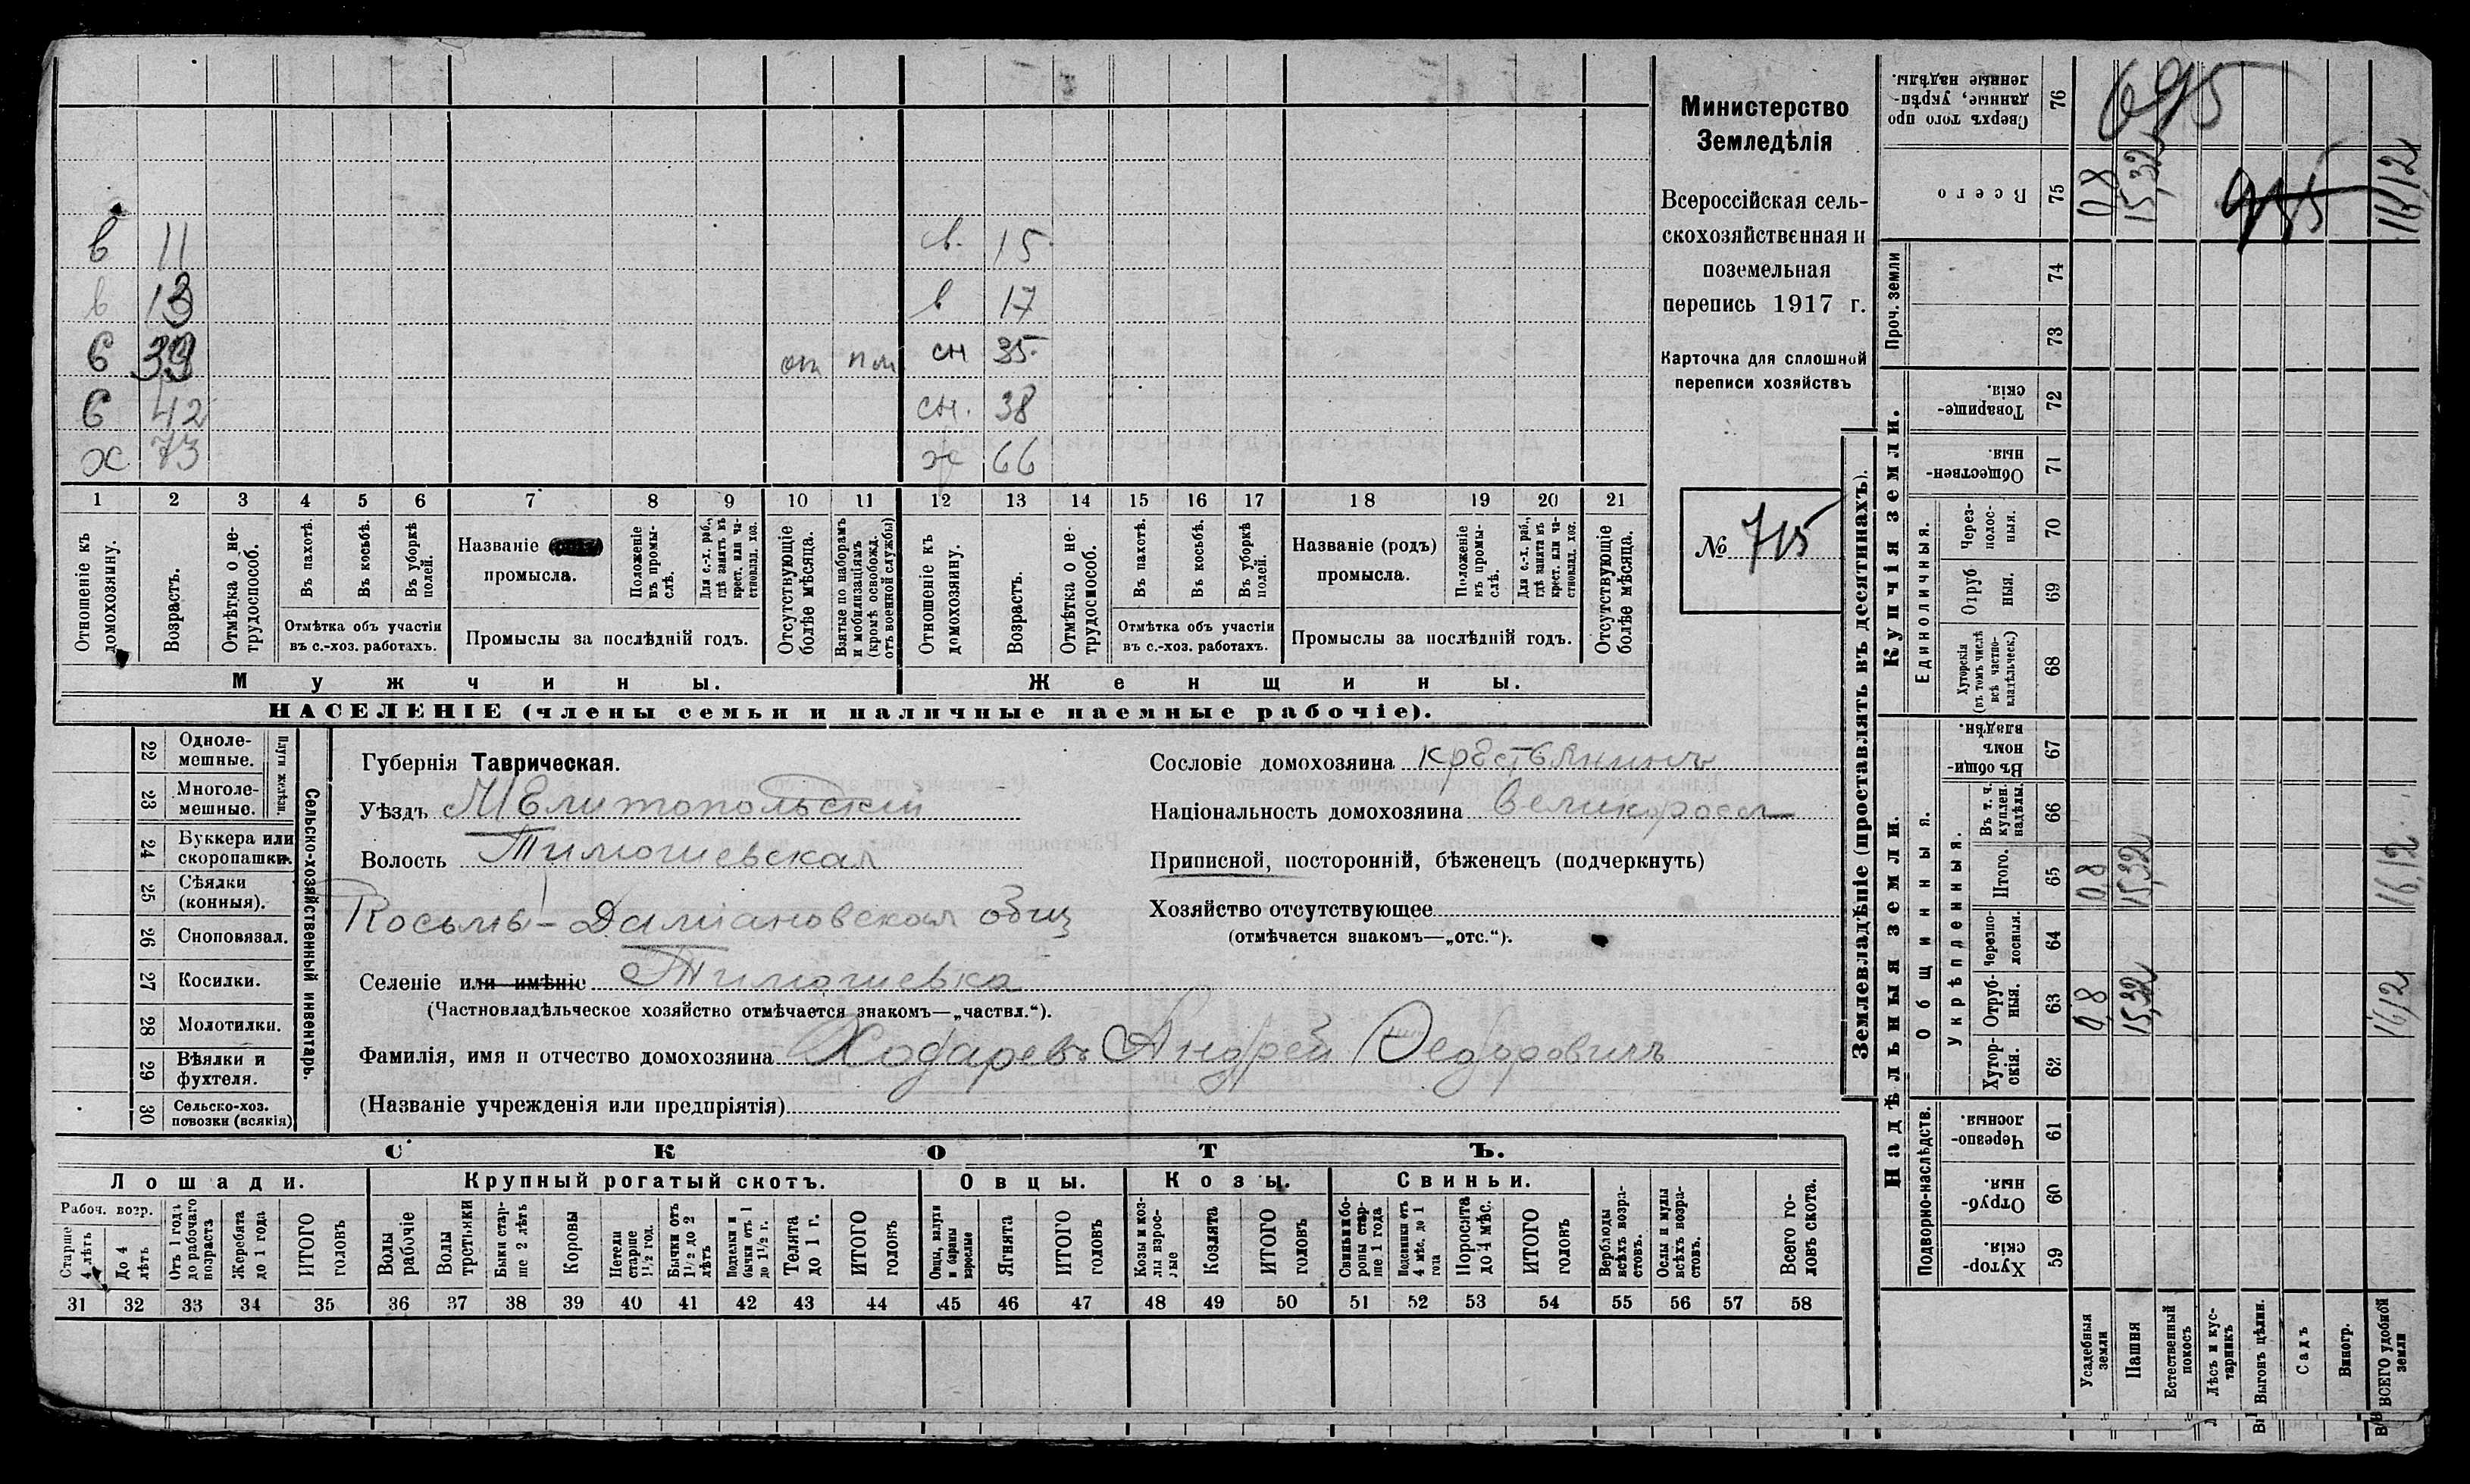 Министерство
Земледѣлія
Всероссійская сель-
скохозяйственная и
поземельная
перепись 1917 г.
Карточка для сплошной
переписи хозяйствъ
№ 715
в 11 в. 15
в 13 в 17
С 39 от пл сн 35
С 42 сн. 38
х 73 ж 66
1 2 3 4 5 6 7 8 9 10 11 12 13 14 15 16 17 18 19 20 21
Отношеніе къ домохозяину.
Возрастъ.
Отмѣтка о не-трудоспособ.
Въ пахотѣ.
Въ косьбѣ.
Въ уборкѣ полей.
Отмѣтка объ участіи
въ с.-хоз. работахъ.
Названіе
промысла.
Положеніе въ промы-слѣ.
Для с.-х. раб., гдѣ занятъ въ крест. или ча-стновлад. хоз.
Промыслы за послѣдній годъ.
Отсутствующіе болѣе мѣсяца.
Взятые по наборамъ и мобилизаціямъ (кромѣ освобожд. отъ военной службы)
Отношеніе къ домохозяину.
Возрастъ.
Отмѣтка о не-трудоспособ.
Въ пахотѣ.
Въ косьбѣ.
Въ уборкѣ полей.
Отмѣтка объ участіи
въ с.-хоз. работахъ.
Названіе (родъ)
промысла.
Положеніе въ промы-слѣ.
Для с.-х. раб., гдѣ занята въ крест. или ча-стновлад. хоз.
Промыслы за послѣдній годъ.
Отсутствующіе болѣе мѣсяца.
Мужчины. Женщины.
НАСЕЛЕНІЕ (члены семьи и наличные наемные рабочіе).
Сельско-хозяйственный инвентарь.
Плуги желѣзн.
22 Одноле-мешные.
23 Многоле-мешные.
24 Буккера или скоропашки.
25 Сѣялки (конныя).
26 Сноповязал.
27 Косилки.
28 Молотилки.
29 Вѣялки и фухтеля.
30 Сельско-хоз. повозки (всякія)
Губернія Таврическая.
Уѣздъ Мелитопольскій
Волость Тимошевская
Косьмы-Даміановская общ
Селеніе или имѣніе Тимошевка
(Частновладѣльческое хозяйство отмѣчается знакомъ—„частвл.“).
Фамилія, имя и отчество домохозяина Ходаревъ Андрей Федоровичъ
(Названіе учрежденія или предпріятія)
Сословіе домохозяина крестьянинъ
Національность домохозяина великоросс
Приписной, посторонній, бѣженецъ (подчеркнуть)
Хозяйство отсутствующее
(отмѣчается знакомъ—„отс.“).
СКОТЪ.
Лошади. Крупный рогатый скотъ. Овцы. Козы. Свиньи.
Рабоч. возр.
Старше 4 лѣтъ
До 4 лѣтъ
Отъ 1 года до рабочаго возраста
Жеребята до 1 года
ИТОГО головъ
Волы рабочіе
Волы третьяки
Быки стар-ше 2 лѣтъ
Коровы
Нетели старше 1½ год.
Бычки отъ 1½ до 2 лѣтъ
Подтелки и бычки отъ 1 до 1½ г.
Телята до 1 г.
ИТОГО головъ
Овцы, валухи и бараны взрослые
Ягнята
ИТОГО головъ
Козы и коз-лы взрос-лые
Козлята
ИТОГО головъ
Свиньи и бо-ровы стар-ше 1 года
Подсвинки отъ 4 мѣс. до 1 года
Поросята до 4 мѣс.
ИТОГО головъ
Верблюды всѣхъ возра-стовъ.
Ослы и мулы всѣхъ возра-стовъ.
Всего го-ловъ скота.
31 32 33 34 35 36 37 38 39 40 41 42 43 44 45 46 47 48 49 50 51 52 53 54 55 56 57 58
Землевладѣніе (проставлять въ десятинахъ).
Надѣльныя земли. Купчія земли. Проч. земли
Подворно-наслѣдств.
Общинныя.
Укрѣпленныя.
Единоличныя.
Сверхъ того про данные, укрѣп-ленные надѣлы. 76 695
Всего 75 0,8 15,32 955 16,12
74
73
Товарище-скія. 72
Обществен-ныя. 71
Через-полос-ныя. 70
Отруб ныя. 69
Хуторскія (въ томъ числѣ всѣ частно-владѣльческ.) 68
Въ общи-номъ владѣн. 67
Въ т. ч. куплен. надѣлы. 66
Итого. 65 0,8 15,32 16,12
Черезпо-лосныя. 64
Отруб-ныя. 63 0,8 15,32 16,12
Хутор-скія. 62
Черезпо-лосныя. 61
Отруб-ныя. 60
Хутор-скія. 59
Усадебныя земли
Пашня
Естественный покосъ
Лѣсъ и кус-тарникъ
Выгонъ цѣлин.
Садъ
Виногр.
ВСЕГО удобной земли